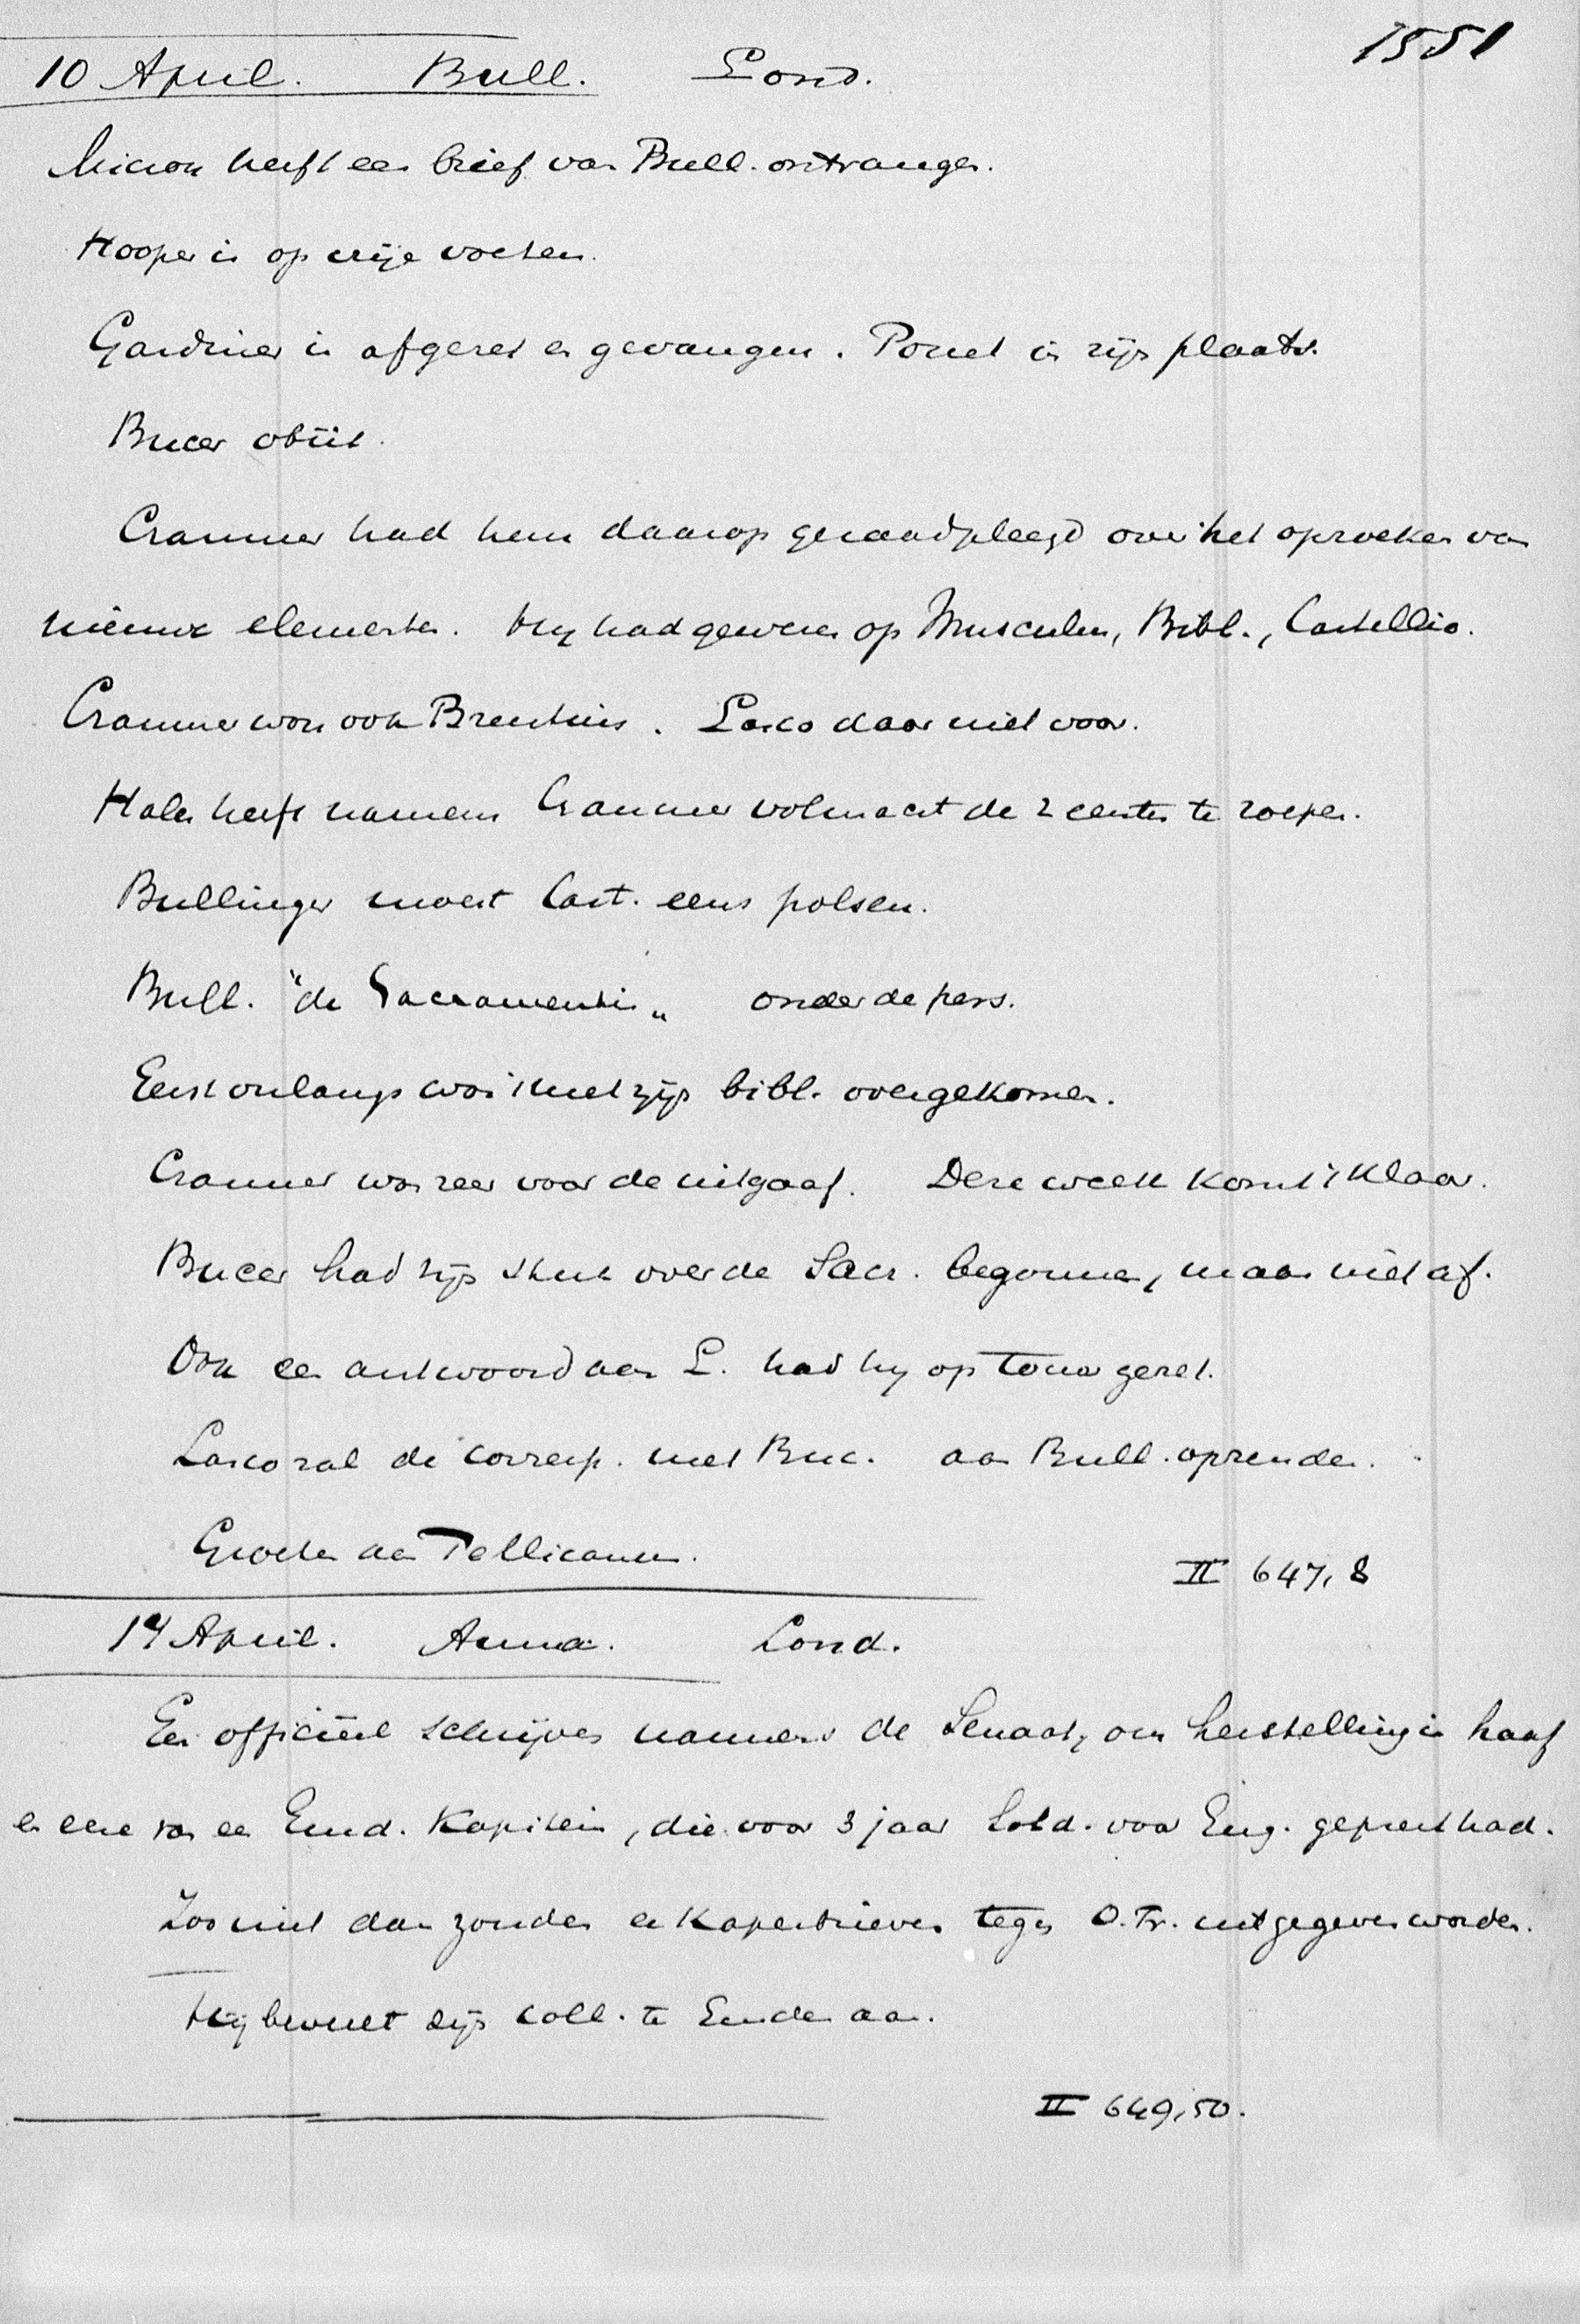 1551
10 April. Bull. Lond.
Micron heeft een brief van Bull. ontvangen.
Hooper is op vrije voeten.
Gardiner is afgezet en gevangen. Ponet in zijn plaats.
Bucer obiit.
Cranmer had hem daarop geraadpleegd over het opzoeken van
nieuwe elementen. Hij had gewezen op Musculus, Bibl., Castellio.
Cranmer wou ook Brentius. Lasco daar niet voor.
Hales heeft namens Cranmer volmacht de 2 eersten te roepen.
Bullinger moest Cast. eens polsen.
Bull. "de Sacramentis„ onder de pers.
Eerst onlangs was 't met zijn bibl. overgekomen.
Cranmer was zeer voor de uitgaaf. Deze week komt 't klaar.
Bucer had zijn stuk over de Sacr. begonnen, maar niet af.
Ook een antwoord aan L. had hij op touw gezet.
Lasco zal de corresp. met Buc. aan Bull. opzenden.
Groeten aan Pellicanus.
II 647,8
14 April. Anna. Lond.
Een officieel schrijven namens de Senaat, om herstelling in haaf
en eere van een Emd. Kapitein, die voor 3 jaar Sold. voor Eng. geprest had.
Zoo niet dan zouden er kaperbrieven tegen O.Fr. uitgegeven worden.
Hij beveelt zijn coll. te Emden aan.
II 649,50.